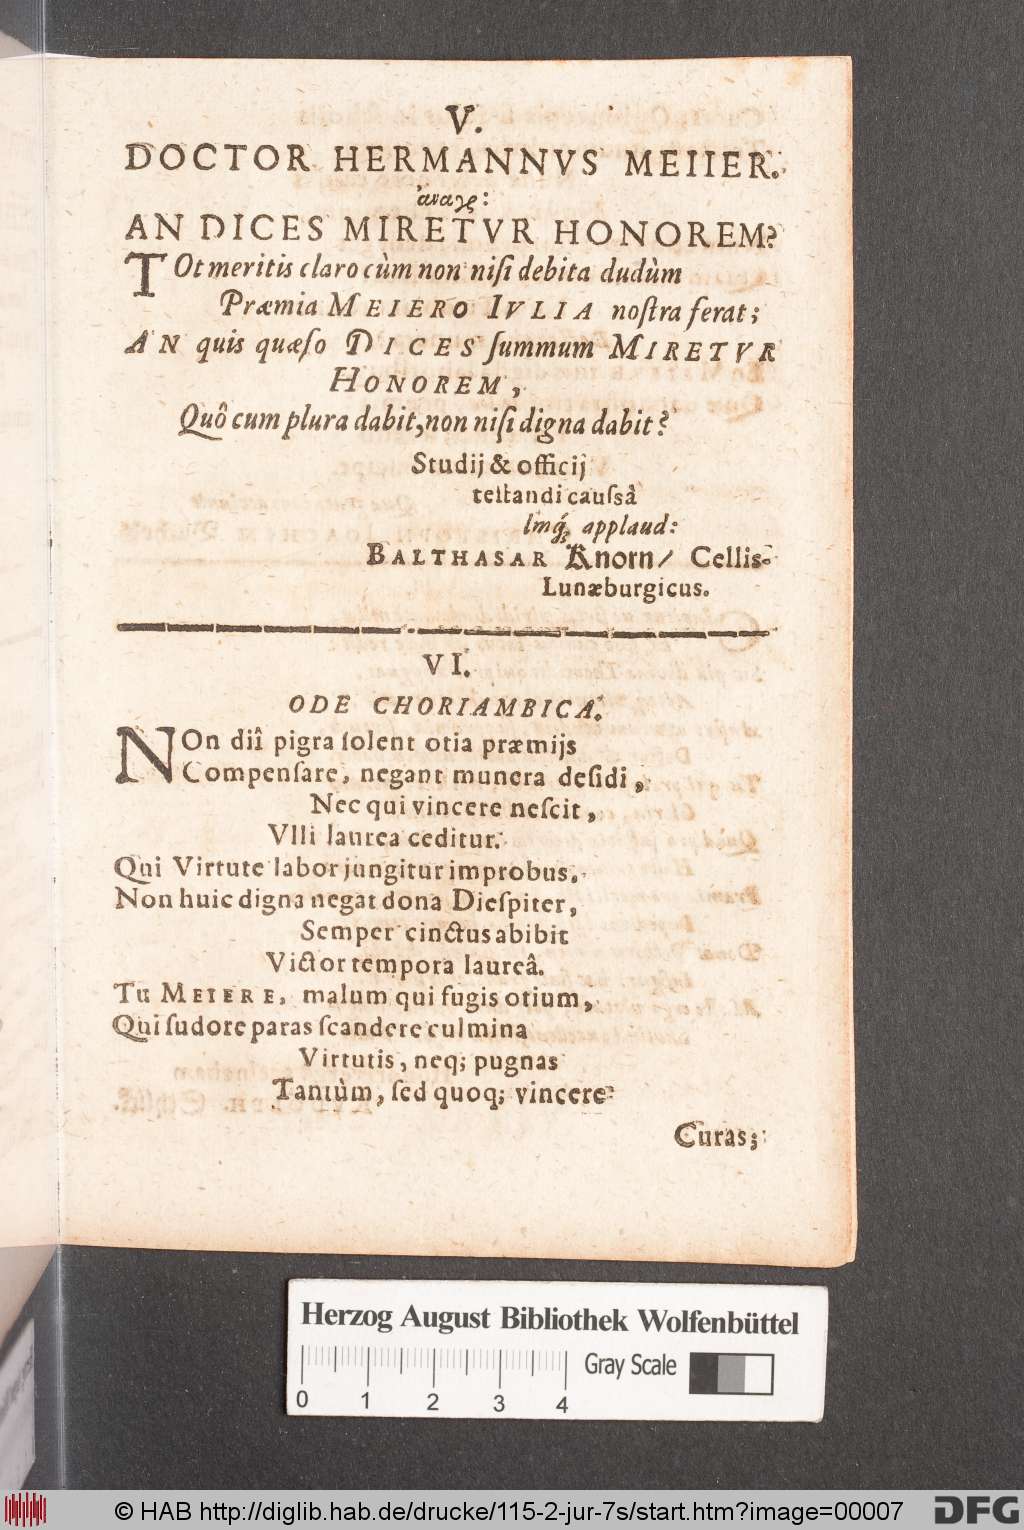 V.
DOCTOR HERMANNVS MEIIER.
ἀναγρ:
AN DICES MIRETVR HONOREM?
TOt meritis claro cùm non niſi debita dudùm
Præmia MEIERO IVLIA noſtra ferat;
AN quis quæſo DICES ſummum MIRETVR
HONOREM,
Quô cum plura dabit, non niſi digna dabit?
Studij & officij
teſtandi cauſsâ
lmq́; applaud:
BALTHASAR Knorn/ Cellis-
Lunæburgicus.
VI.
ODE CHORIAMBICA.
NOn diî pigra ſolent otia præmijs
Compenſare, negant munera deſidi,
Nec qui vincere neſcit,
Vlli laurea ceditur.
Qui Virtute labor jungitur improbus,
Non huic digna negat dona Dieſpiter,
Semper cinctus abibit
Victor tempora laureâ.
Tu MEIERE, malum qui fugis otium,
Qui ſudore paras ſcandere culmina
Virtutis, neq; pugnas
Tantùm, ſed quoq; vincere
Curas;
Herzog August Bibliothek Wolfenbüttel
Gray Scale
0 1 2 3 4
© HAB http://diglib.hab.de/drucke/115-2-jur-7s/start.htm?image=00007
DFG